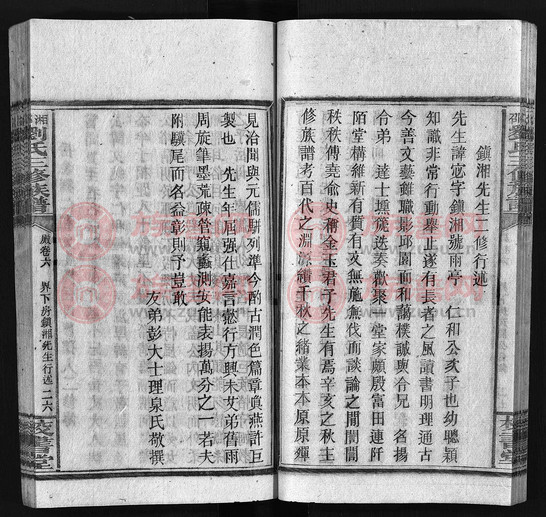 鎮湘先生二修行述
先生諱宓字鎮湘號雨亭 仁和公次子也幼聰穎
知識非常行動舉止遂有長者之風讀書明理通古
今善文藝雖職影邱園而和讓樸誠與合兄 名揚
令弟 達士壎篪迭奏歡聚一堂家頗殷富田連阡
陌堂構維新有質有文無施無伐而談論之間誾誾
秩秩傅堯俞史稱金玉君子先生有焉辛亥之秋主
修族譜考百代之淵源續千秋之緒業本本原原殫
見洽聞與元儒駢列準今酌古潤色篇章真燕許巨
製也 先生年屆强仕嘉言懿行方興未艾弟舊雨
周旋筆墨荒疎管窺蠡測安能表揚萬分之一若夫
附驥尾而名益彰則予豈敢
友弟彭大士理泉氏敬撰
劉氏三修族譜
殿卷六 界下房鎮湘先生行述 二六
校書堂